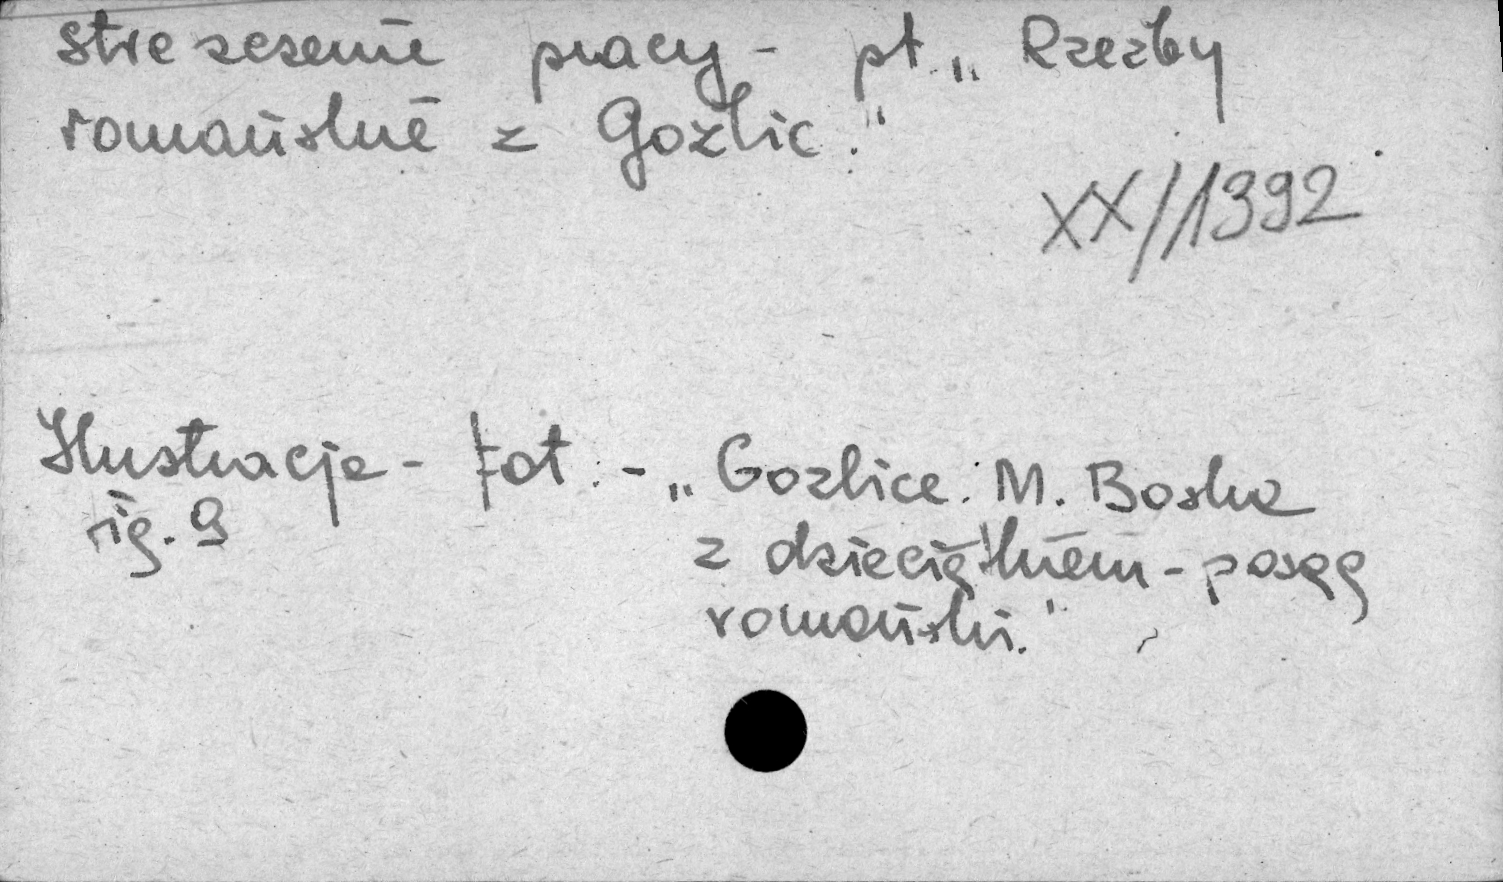 streszczenie pracy - pt. „Rzeźby
romańskie z Goźlic."
XX/1392
Ilustracje - fot. - „Gozlice. M. Boska
rig. 9
z dzieciątkiem - posąg
romański."